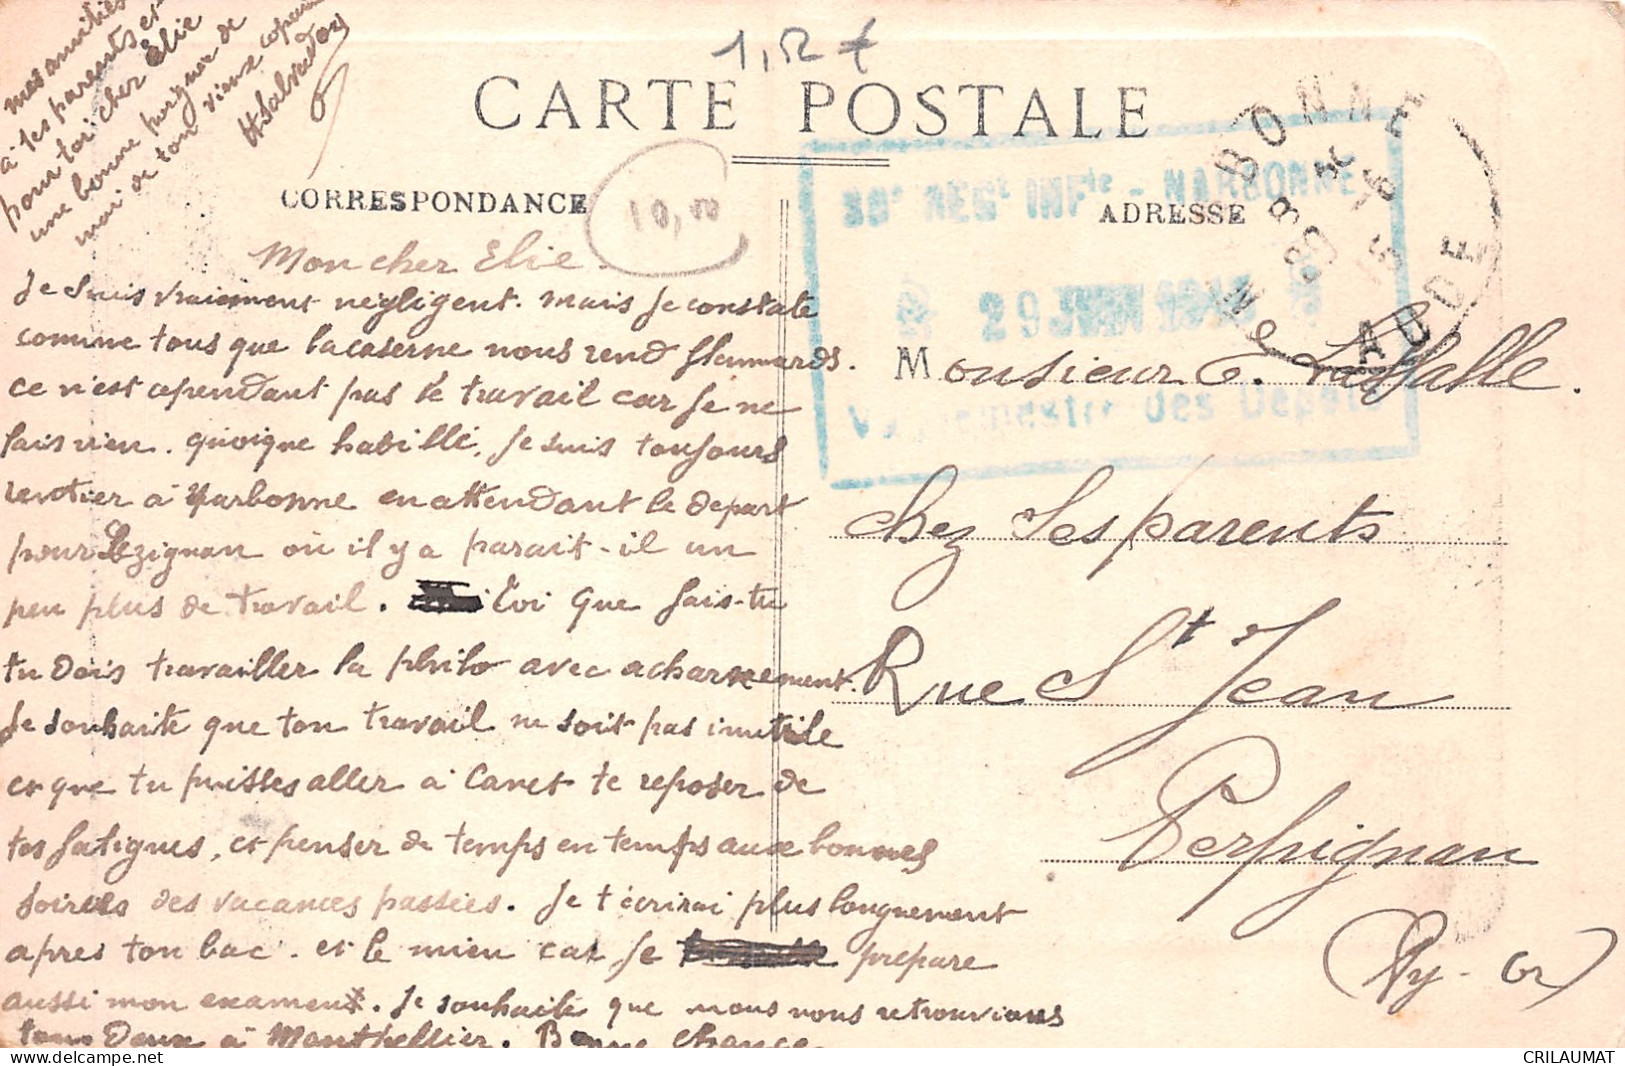 1,52 €
CARTE POSTALE
CORRESPONDANCE
ADRESSE
10,00
NARBONNE
AUDE
REGt INFie - NARBONNE
29 JUIN
des Dépôts
Mon cher Elie.
Je suis vraiement négligent. mais je constate
comme tous que la caserne nous rend flammards.
ce n'est cependant pas le travail car je ne
fais rien. quoique habillé, je suis toujours
rentier à Narbonne en attendant le depart
pour Lézignan où il y a parait-il un
peu plus de travail. Toi que fais-tu
tu dois travailler la philo avec acharnement.
Je souhaite que ton travail ne soit pas inutile
et que tu puisses aller à Canet te reposer de
tes fatigues, et penser de temps en temps aux bonnes
soirées des vacances passées. Je t'écrirai plus longuement
apres ton bac. et le mien car je prépare
aussi mon examen. Je souhaite que nous nous retrouvions
tous deux à Montpellier. Bonne chance.
mes amitiés
à tes parents et
pour toi cher Elie
une bonne poignée de
main de ton vieux copain
HSalvador
Monsieur E. Lassalle.
chez ses parents
Rue St Jean
Perpignan
(Py-Or)
CRILAUMAT